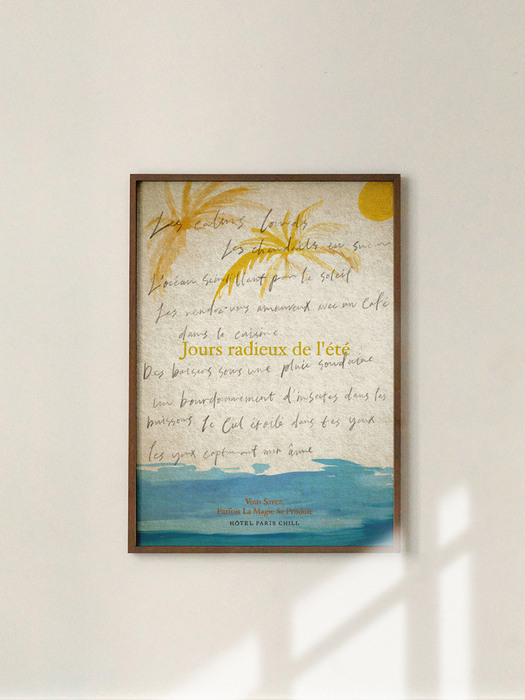 Les calins lourds
Les chandails en sucre
L'océan scintillant par le soleil
Les rendez-vous amoureux avec un café
dans la cuisine
Jours radieux de l'été
Des baisers sous une pluie soudaine
un bourdonnement d'insectes dans les
buissons, le Ciel étoilé dans tes yeux
les yeux capturant mon âme
Vous Savez,
Parfois La Magie Se Produit
HÔTEL PARIS CHILL